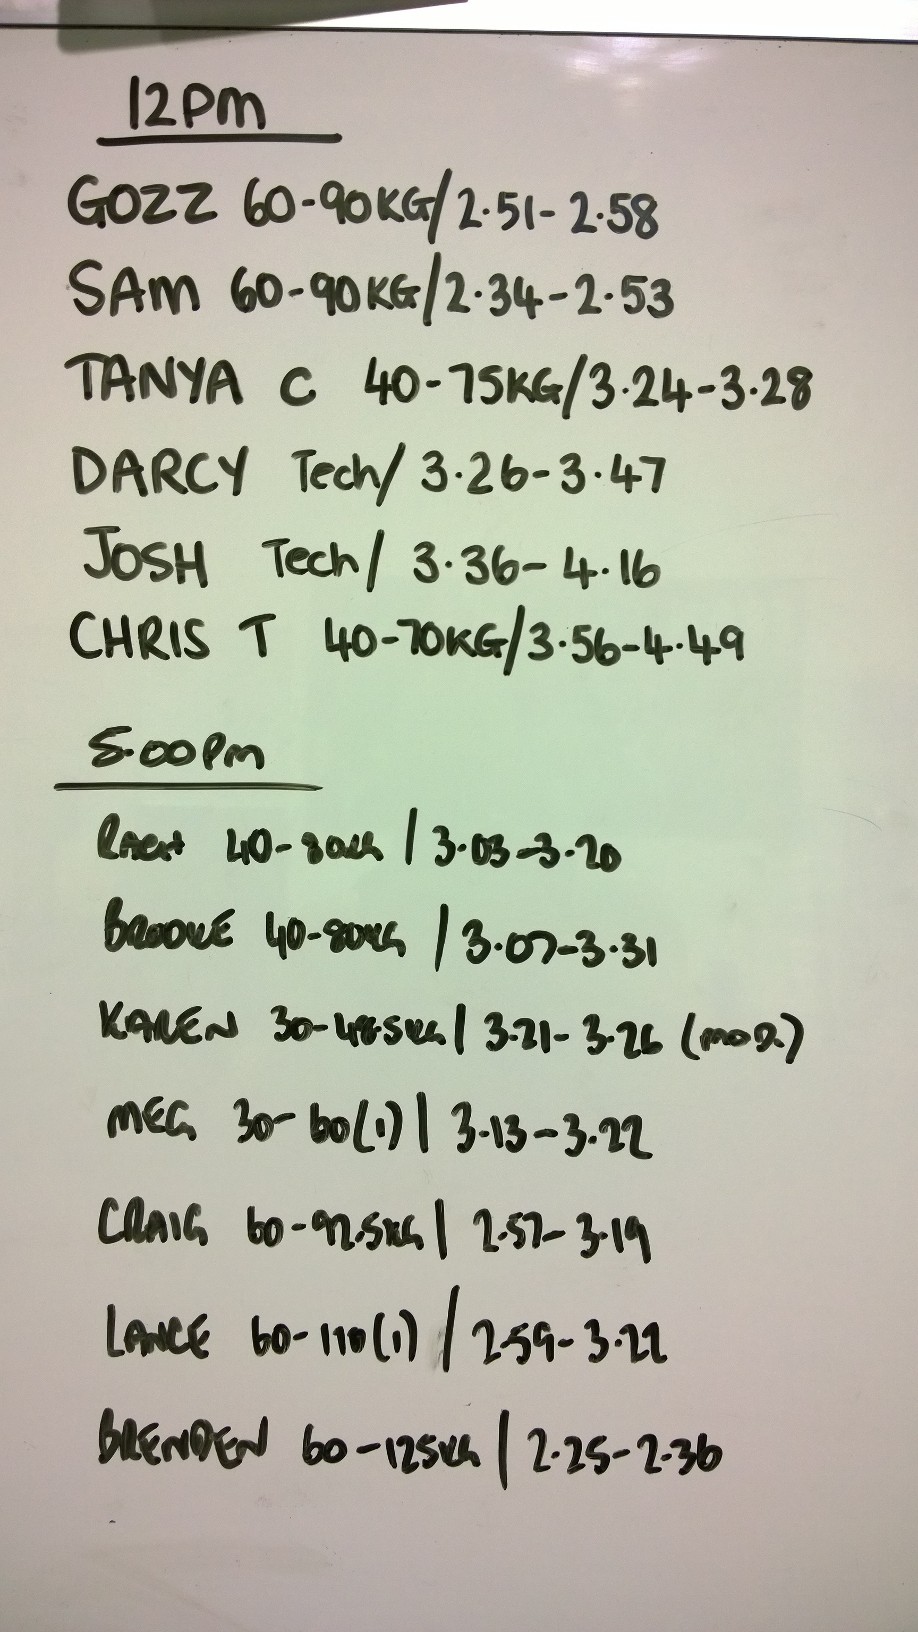 12PM
GOZZ 60-90KG/2.51-2.58
SAM 60-90KG/2.34-2.53
TANYA C 40-75KG/3.24-3.28
DARCY Tech/ 3.26-3.47
JOSH Tech/ 3.36-4.16
CHRIS T 40-70KG/3.56-4.49
5.00PM
RACH 40-80KG / 3.03-3.20
BROOKE 40-80KG / 3.07-3.31
KAREN 30-48.5KG / 3.21-3.26 (MOD.)
MEG 30-60(1) / 3.13-3.22
CRAIG 60-92.5KG / 2.57-3.19
LANCE 60-110(1) / 2.59-3.22
BRENDEN 60-125KG / 2.25-2.36